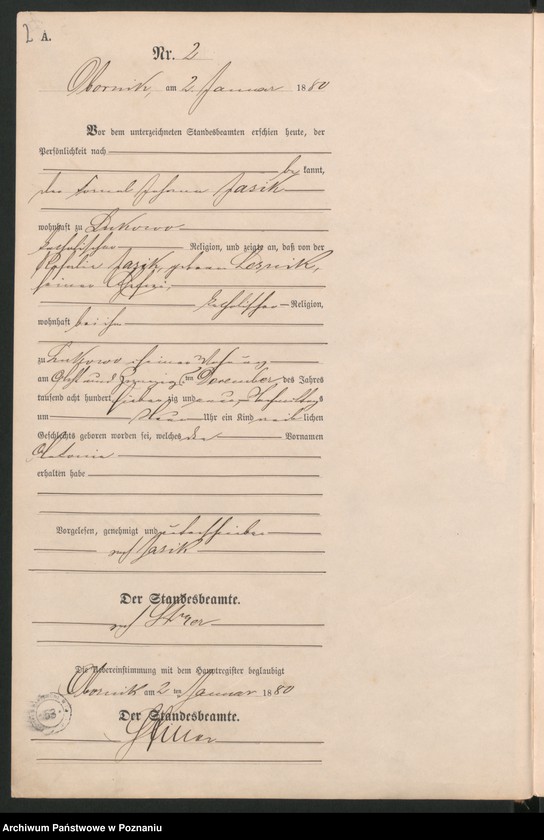 2 A.
Nr. 2
Obornik, am 2 Januar 1880
Vor dem unterzeichneten Standesbeamten erschien heute, der
Persönlichkeit nach
be kannt,
der Fornal Johann Jasik
wohnhaft zu Lukowo
katholischer Religion, und zeigte an, daß von der
Rosalie Jasik, geborne
seiner Ehefrau,
katholischer Religion,
wohnhaft bei ihm
zu Lukowo in seiner Wohnung
am Acht und zwanzig ten Dezember des Jahres
tausend acht hundert siebenzig und neun Nachmittags
um Uhr ein Kind weiblichen
Geschlechts geboren worden sei, welches den Vornamen
Antonie
erhalten habe
Vorgelesen, genehmigt und unterschrieben
Jasik
Der Standesbeamte.
Die Uebereinstimmung mit dem Hauptregister beglaubigt
Obornik am 2 ten Januar 1880
Der Standesbeamte.
Archiwum Państwowe w Poznaniu